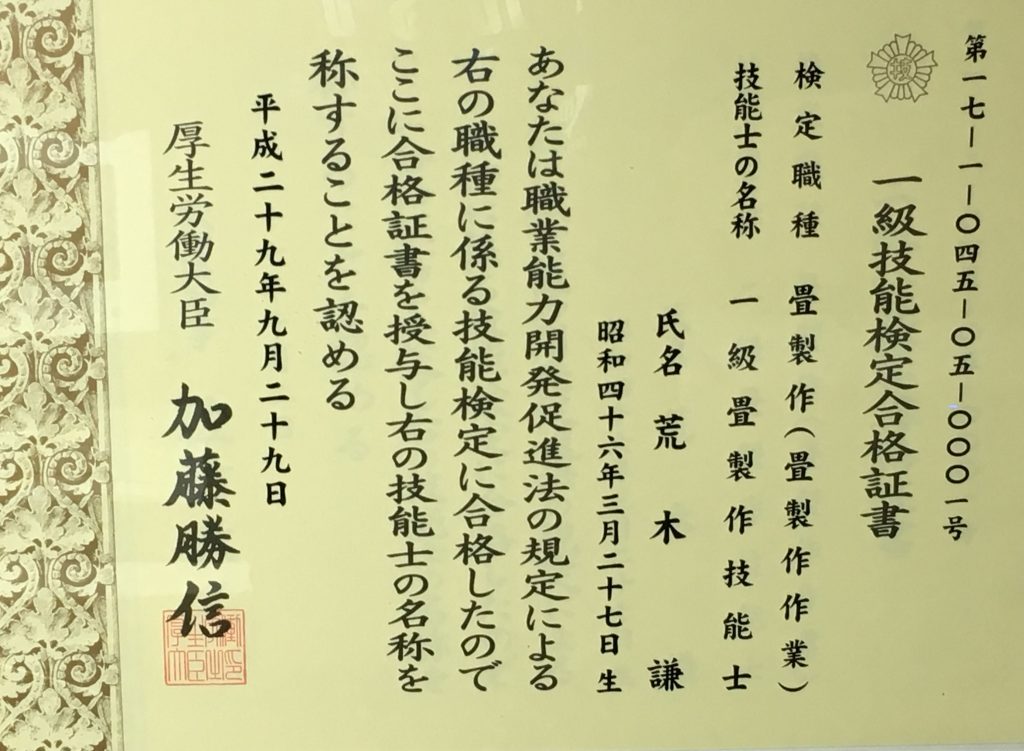 第一七－一－〇四五－〇五－〇〇〇一号
一級技能検定合格証書
検定職種 畳製作（畳製作作業）
技能士の名称 一級畳製作技能士
氏名 荒木 謙
昭和四十六年三月二十七日生
あなたは職業能力開発促進法の規定による
右の職種に係る技能検定に合格したので
ここに合格証書を授与し右の技能士の名称を
称することを認める
平成二十九年九月二十九日
厚生労働大臣 加藤勝信